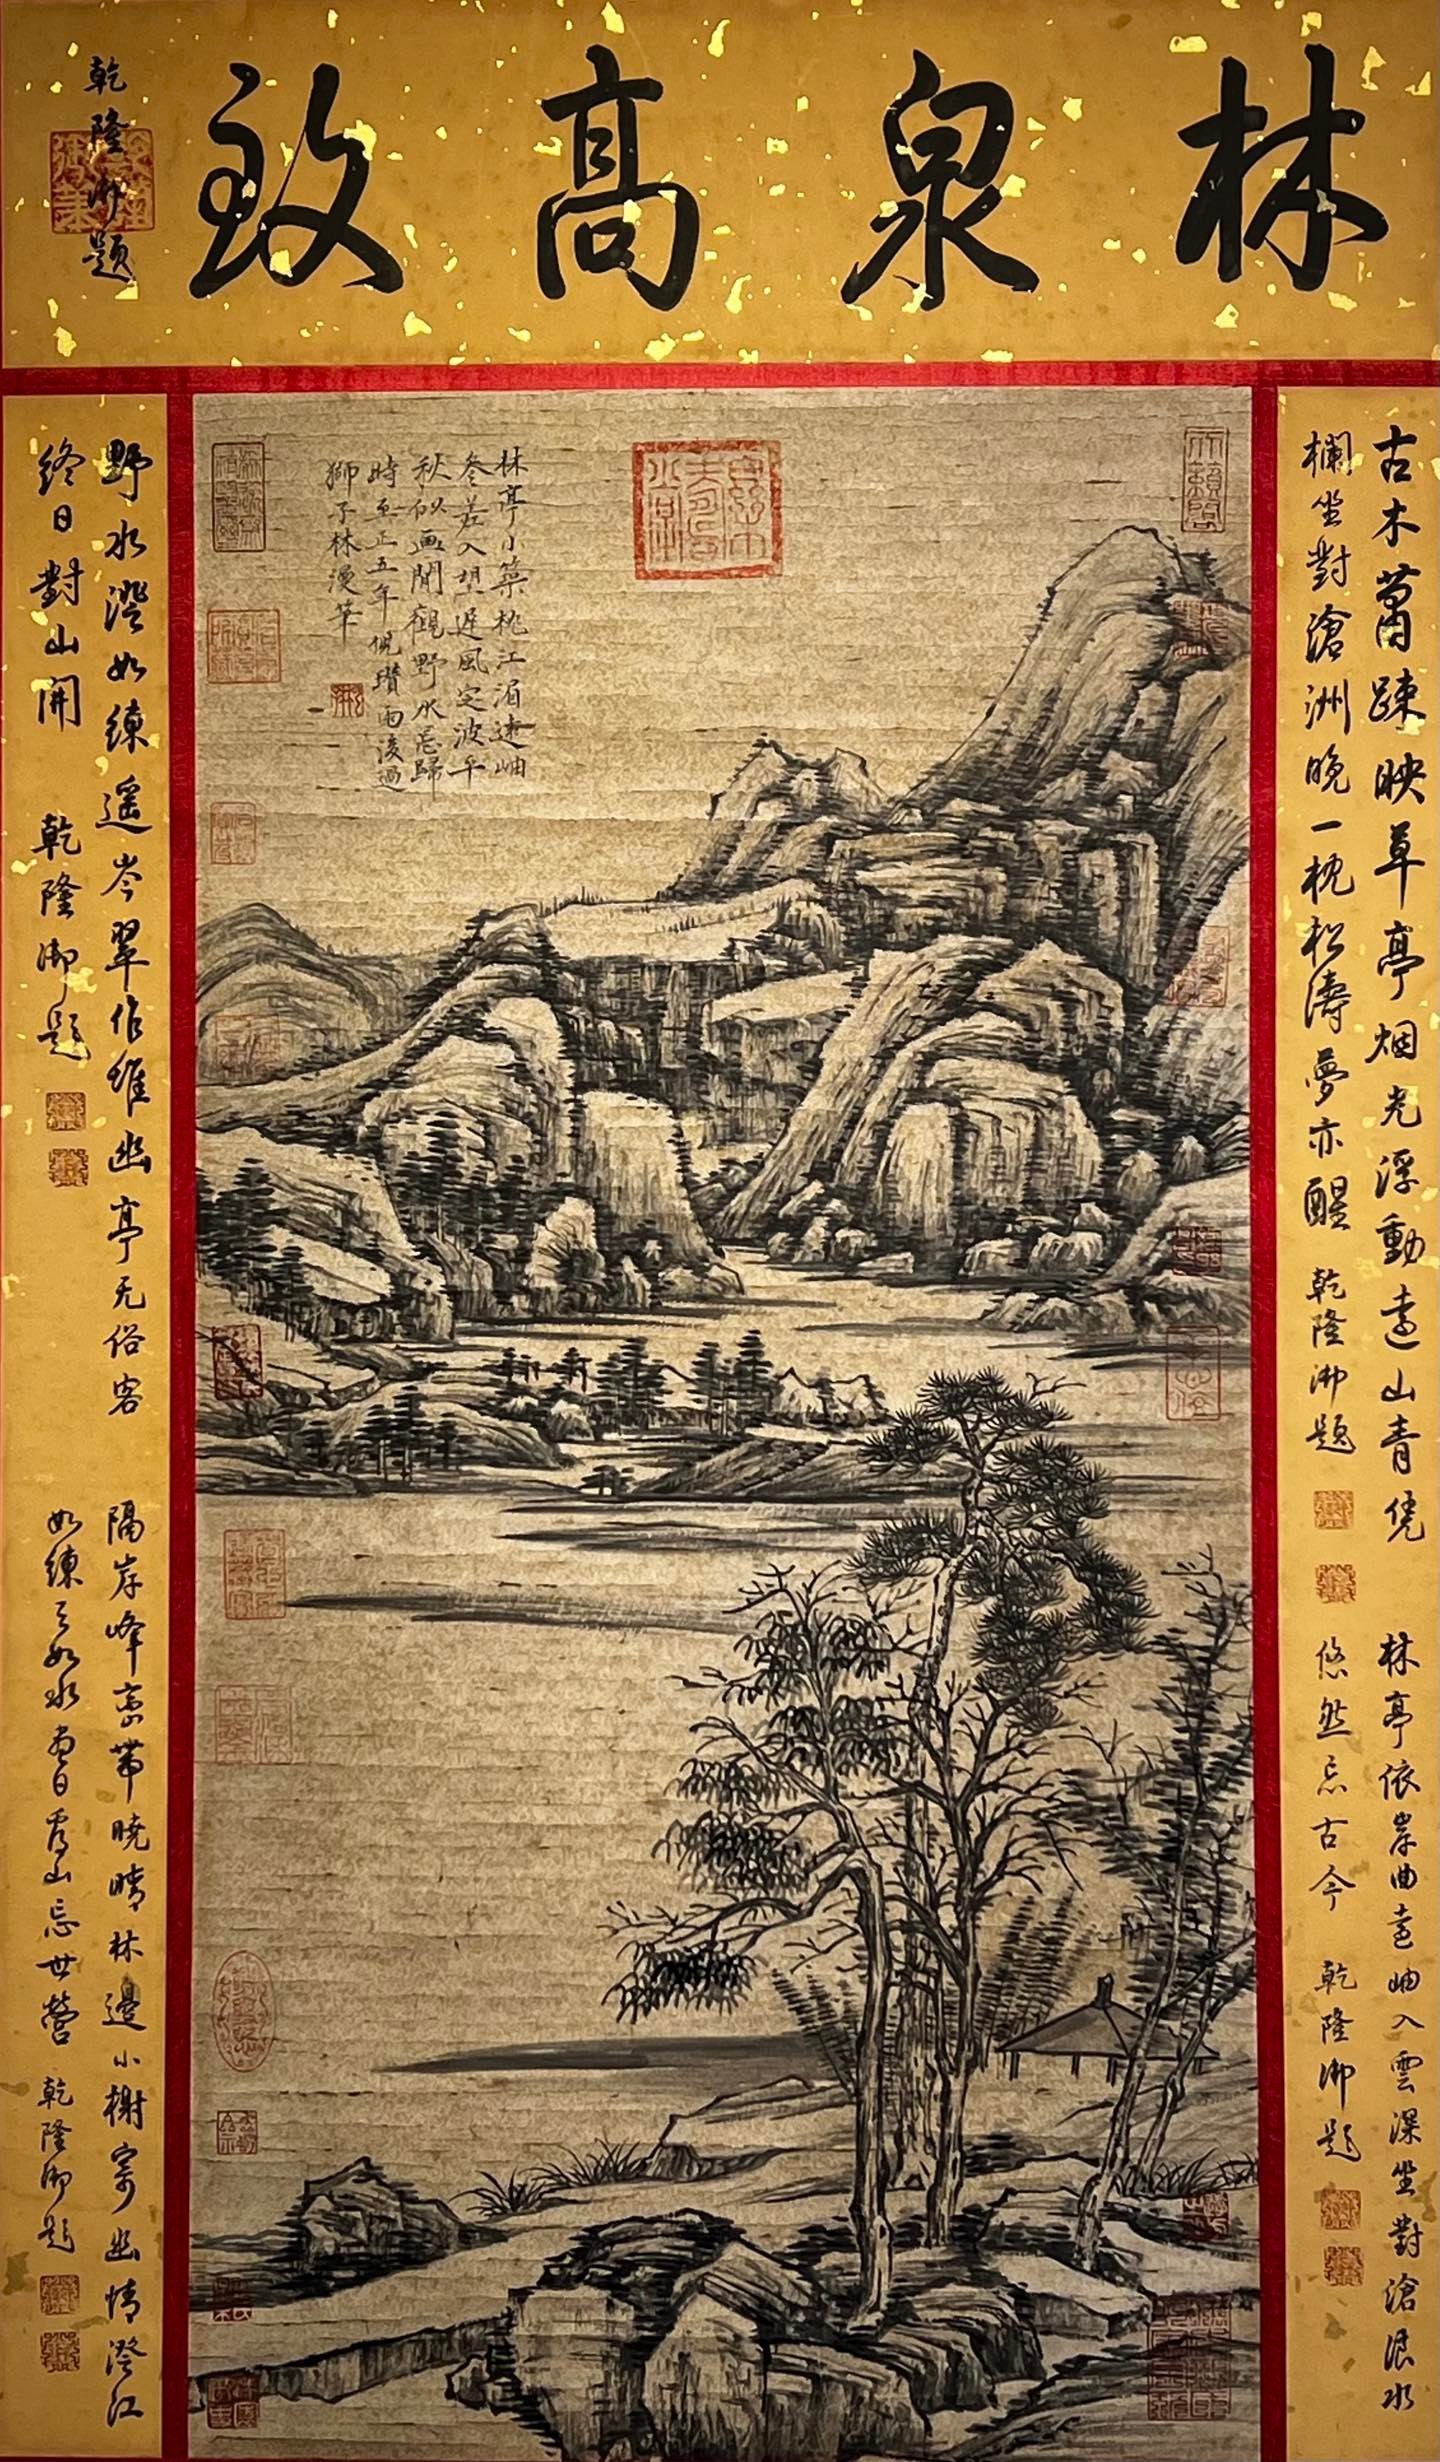 林泉高致
乾隆御題
古木蕭疎映草亭烟光浮動遠山青凭
欄坐對滄洲晚一枕松濤夢亦醒
乾隆御題
林亭依岸曲遠岫入雲深坐對滄浪水
悠然忘古今
乾隆御題
林亭小築枕江湄遠岫
參差入望遲風定波平
秋似画閒觀野水忘歸
時至正五年倪瓚雨後過
獅子林漫筆
野水澄如練遥岑翠作堆幽亭无俗客
終日對山開
乾隆御題
隔岸峰巒帯曉晴林邊小榭寄幽情澄江
如練
如水
看山忘世營
乾隆御題